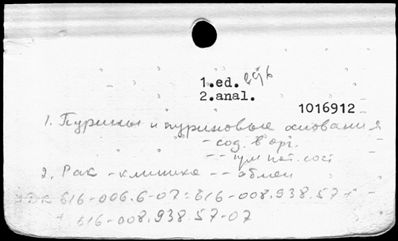 1.ed.
2.anal.
1016912
1. Пурины и пуриновые основания
- сод. в орг.
-- при пат. сост
2. Рак - клиника -- обмен
616-006.6-07:616-008.938.57+
+ 616-008.938.57-07